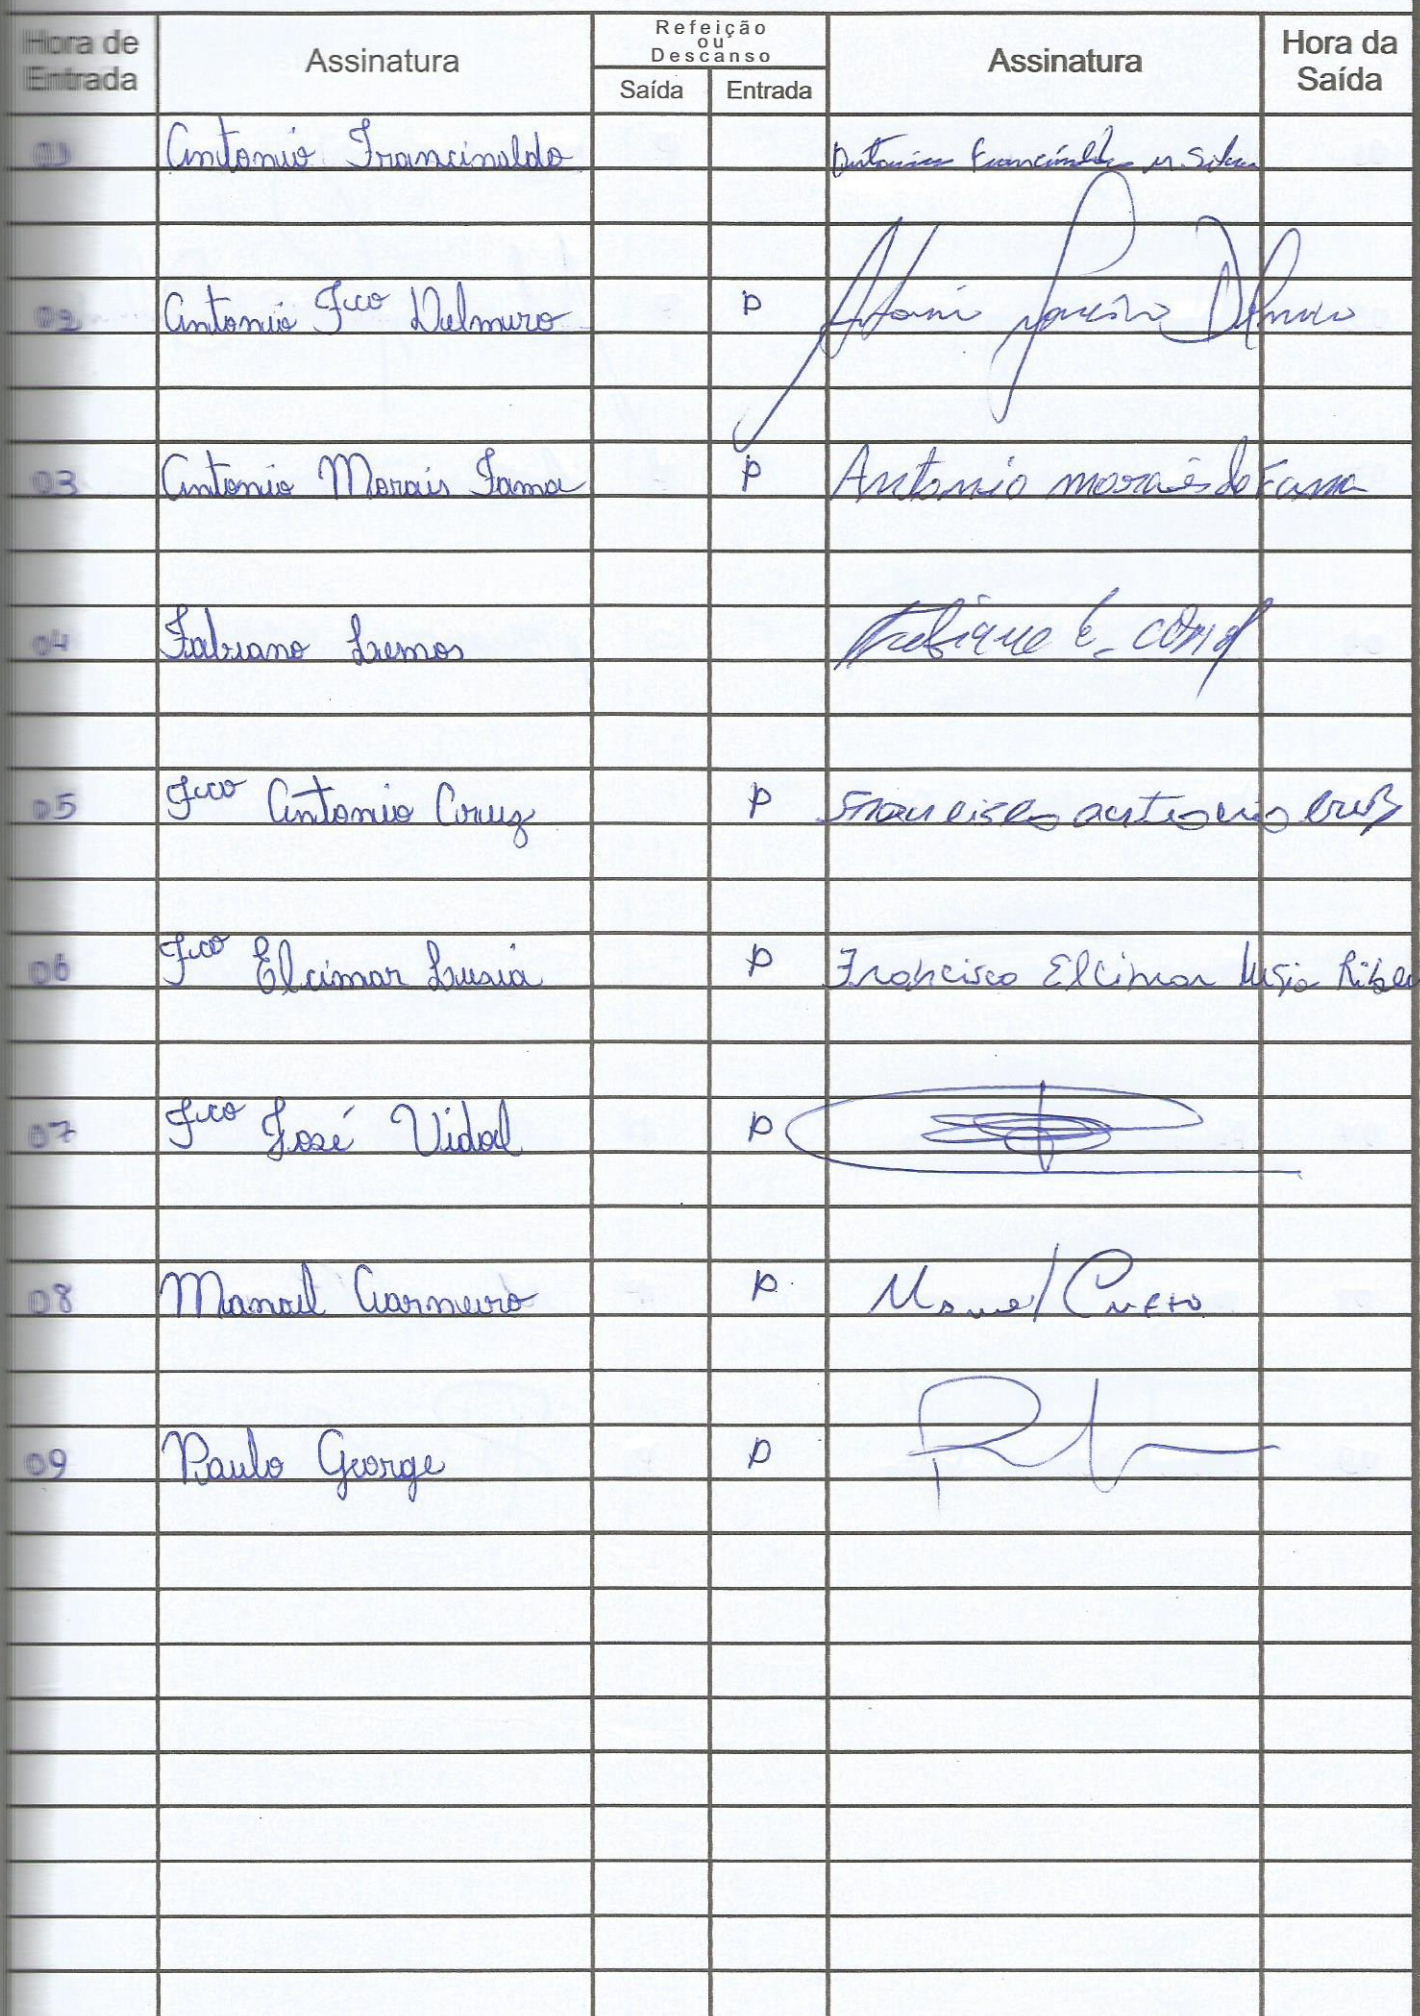 Hora de Entrada Assinatura Refeição ou Descanso Saída Entrada Assinatura Hora da Saída
01 Antonio Francinaldo Antonio Francinaldo M. Silva
02 Antonio Fco Delmiro P Antonio Delmiro
03 Antonio Morais Fama P Antonio moraes do Fama
04 Fabiano Lemos
05 Fco Antonio Cruz P Francisco antonio cruz
06 Fco Elcimar Lusia P Francisco Elcimar Lusia
07 Fco José Vidal P
08 Manoel Carneiro P. Manoel
09 Paulo George P